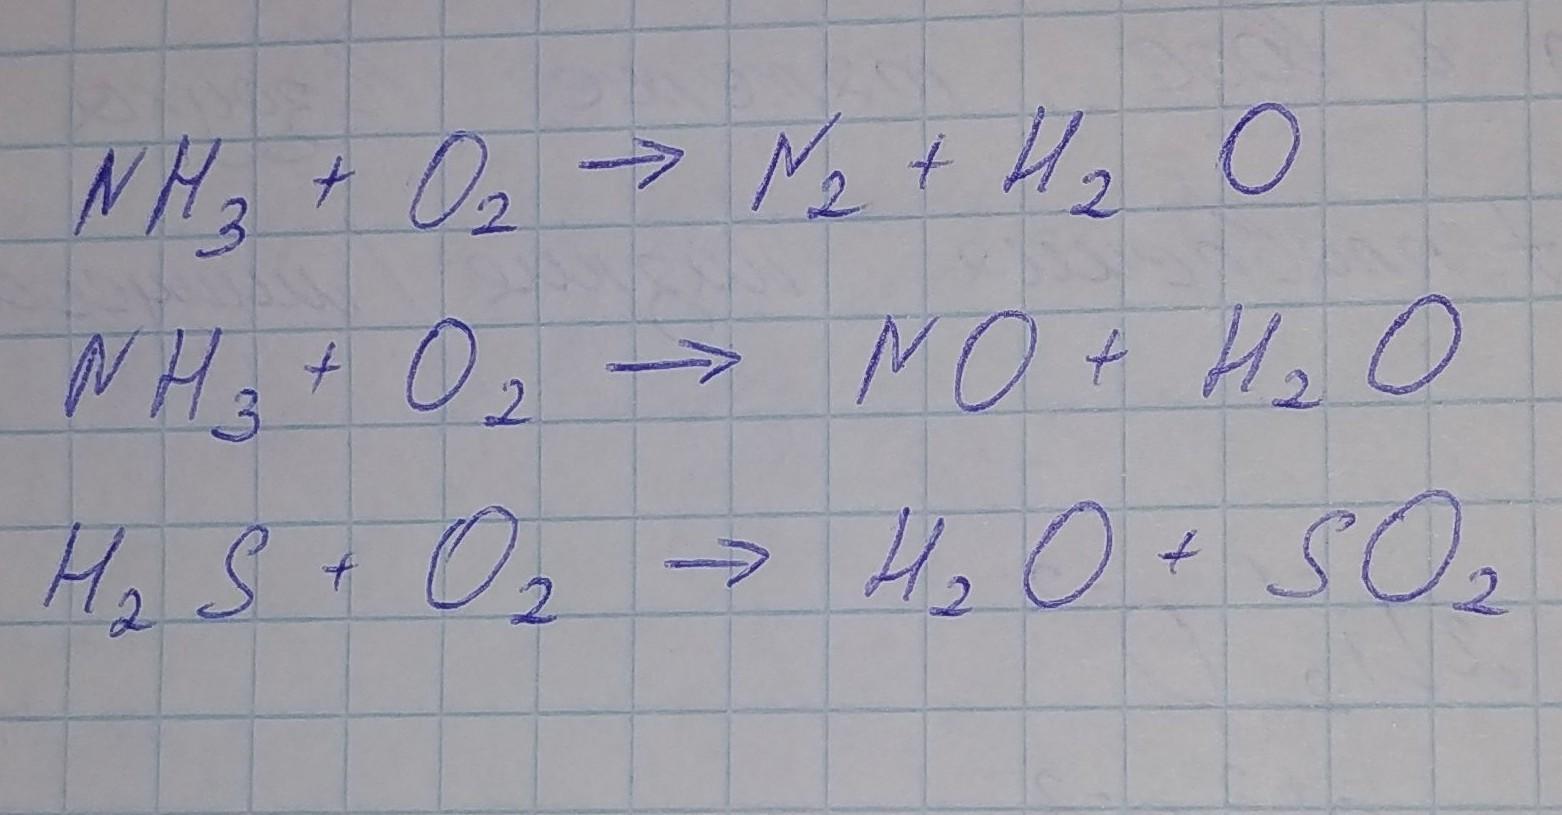 NH₃ + O₂ → N₂ + H₂O
NH₃ + O₂ → NO + H₂O
H₂S + O₂ → H₂O + SO₂